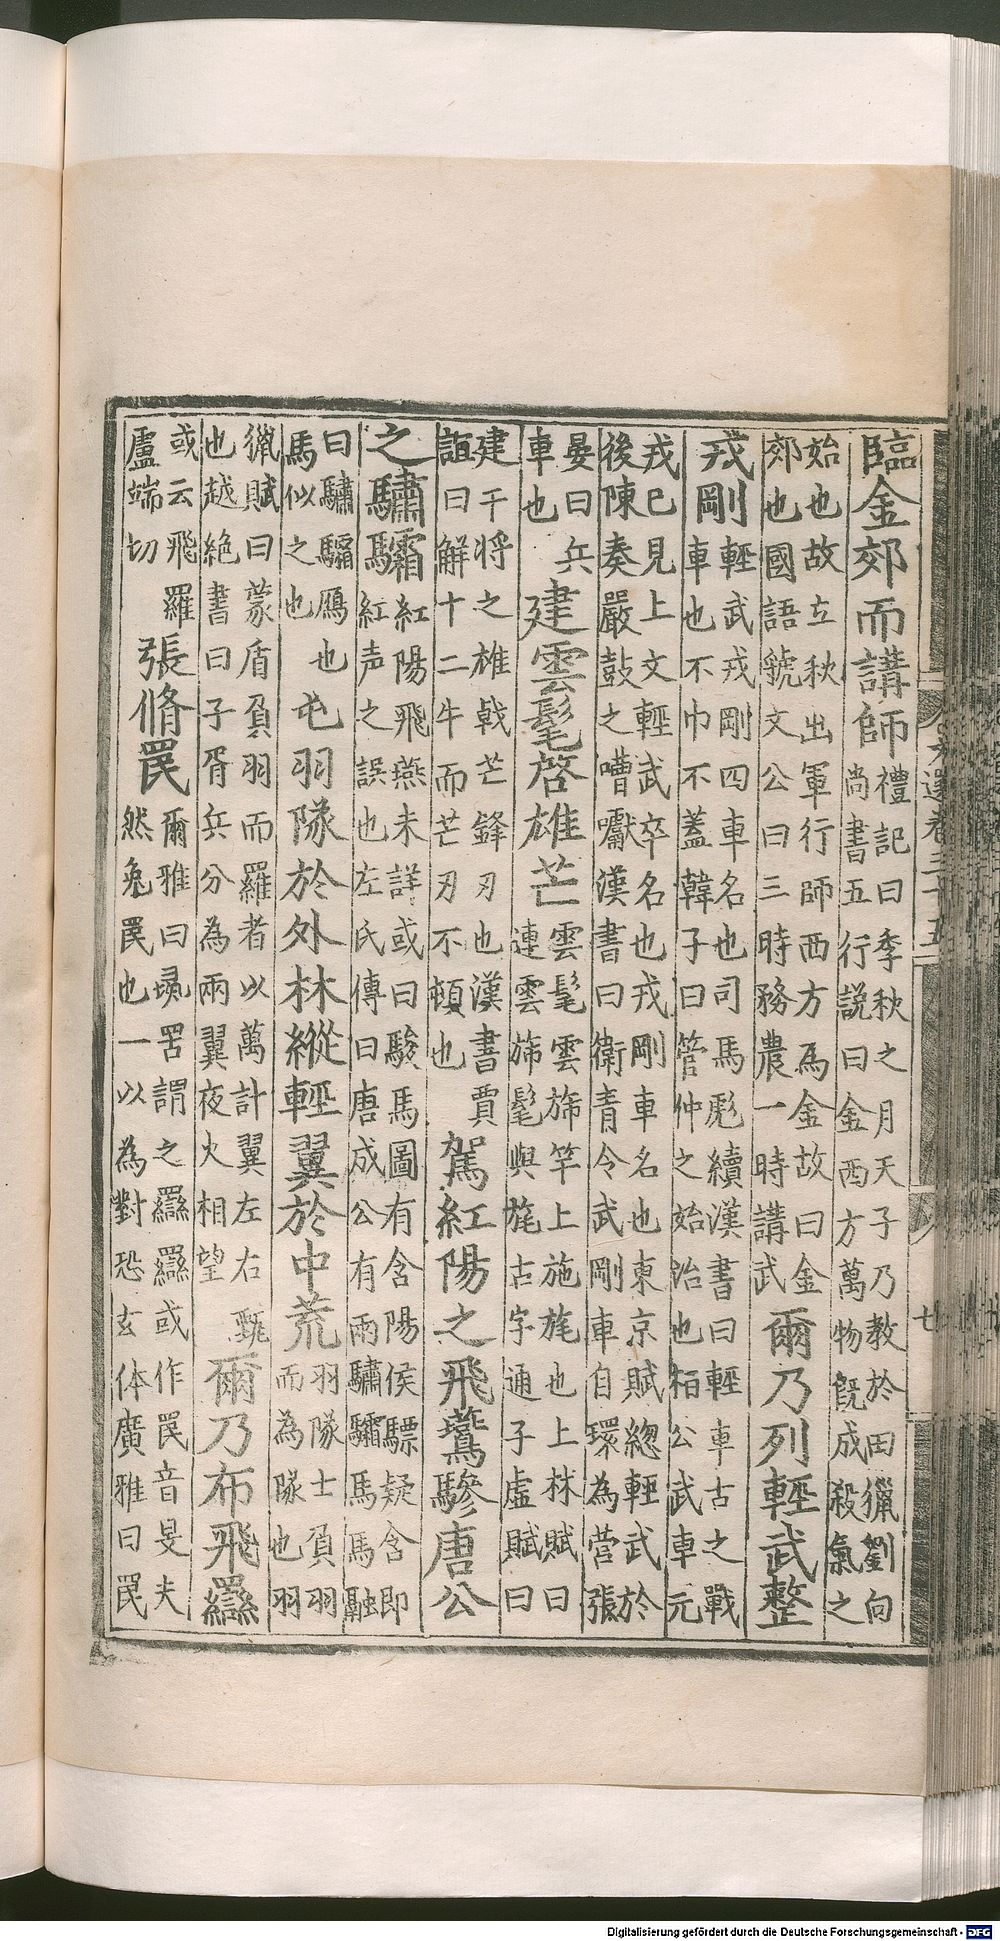 文選卷三十五
臨金郊而講師
禮記曰季秋之月天子乃教於田獵劉向
尚書五行説曰金西方萬物旣成殺氣之
始也故立秋出軍行師西方為金故曰金
郊也國語虢文公曰三時務農一時講武
爾乃列輕武整
戎剛
輕武戎剛四車名也司馬彪續漢書曰輕車古之戰
車也不巾不蓋韓子曰管仲之始治也栢公武車元
戎已見上文輕武卒名也戎剛車名也東京賦總輕武於
後陳奏嚴鼓之嘈囐漢書曰衛青令武剛車自環為營張
晏曰兵
車也
建雲髦啓雄芒
雲髦雲旆竿上施旄也上林賦曰
連雲旆髦與旄古字通子虛賦曰
建干将之雄戟芒鋒刃也漢書賈
誼曰解十二牛而芒刃不頓也
駕紅陽之飛鷰驂唐公
之驌驦
紅陽飛燕未詳或曰駿馬圖有含陽侯驃疑含即
紅声之誤也左氏傳曰唐成公有兩驌驦馬馬融
曰驌驦鴈也
馬似之也
屯羽隊於外林縱輕翼於中荒
羽隊士負羽
而為隊也羽
獵賦曰蒙盾負羽而羅者以萬計翼左右甄
也越絶書曰子胥兵分為兩翼夜火相望
爾乃布飛羉
或云飛羅
盧端切
張脩罠
爾雅曰彘罟謂之羉羉或作罠音旻夫
然兔罠也一以為對恐玄体廣雅曰罠
Digitalisierung gefördert durch die Deutsche Forschungsgemeinschaft - DFG